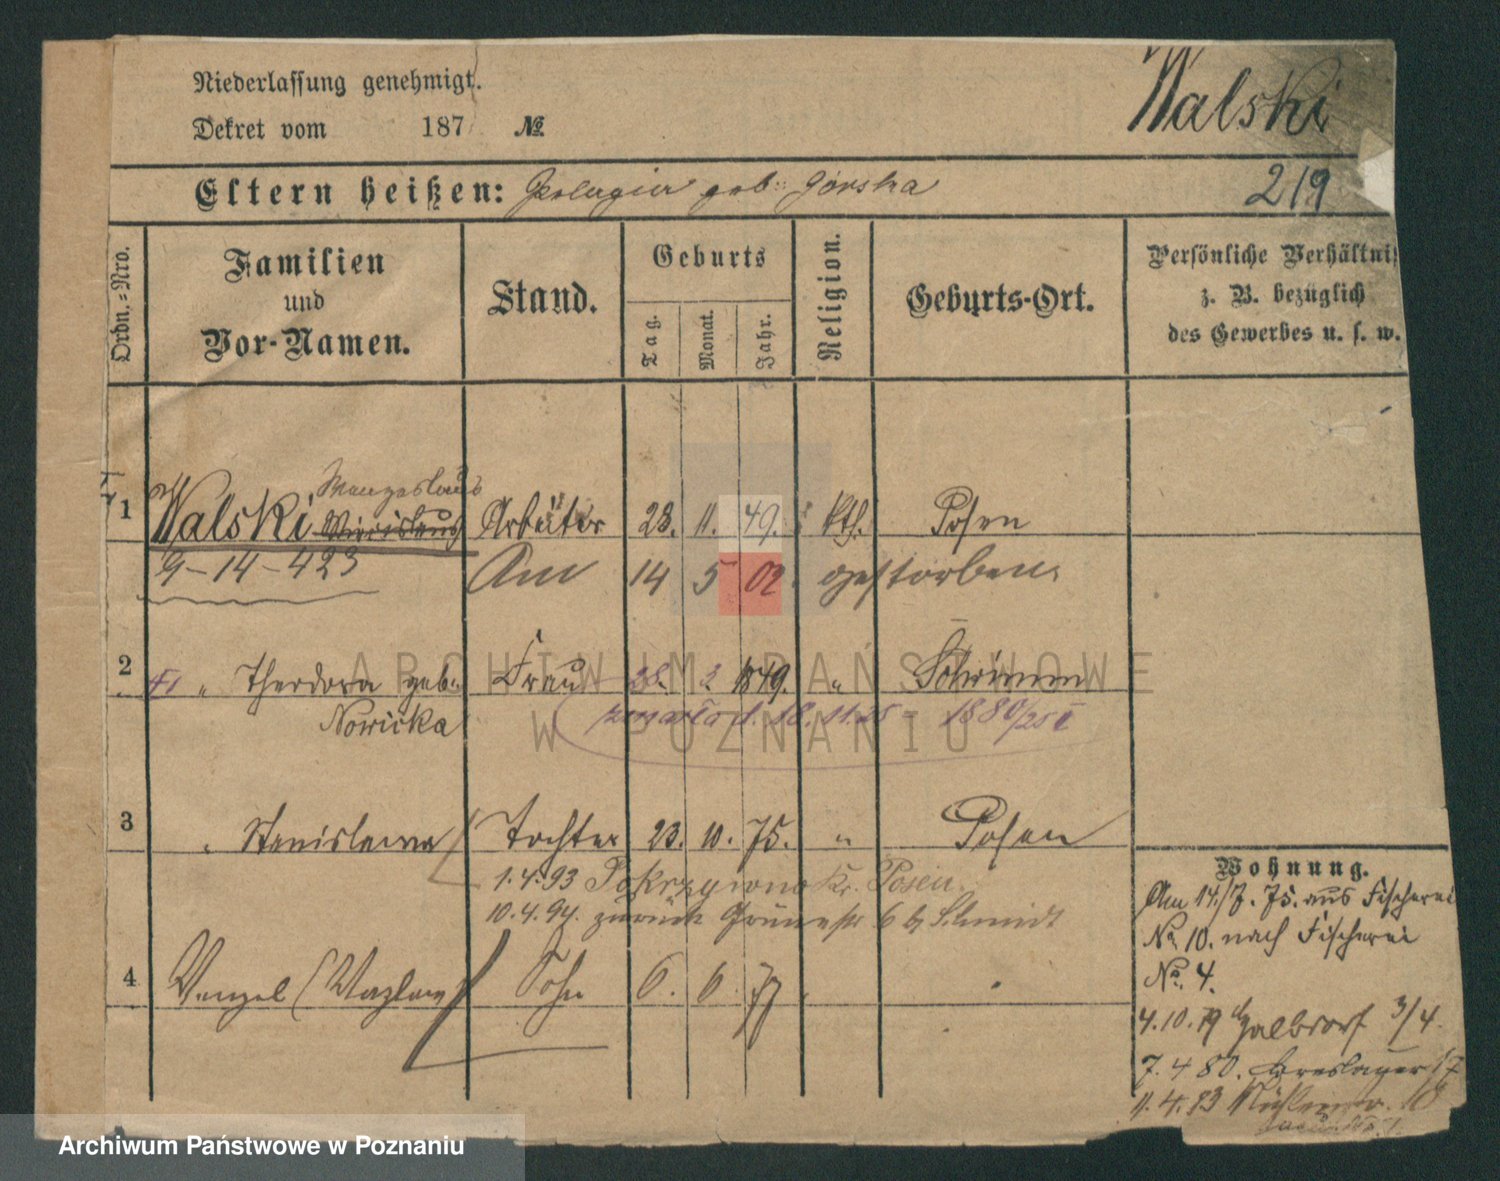 Niederlassung genehmigt.
Dekret vom 187 №
Walski
219
Eltern heißen: Pelagia geb: Górska
Ordn.-Nro.
Familien
und
Vor-Namen.
Stand.
Geburts
Tag.
Monat.
Jahr.
Religion.
Geburts-Ort.
Persönliche Verhältni
z. B. bezüglich
des Gewerbes u. s. w.
1 Walski Arbeiter 23. 11. 49. kth. Posen
9-14-423 Am 14 5 02 gestorben.
2 " Theodora geb: Frau 28. 2. 1849. " Schrimm
Nowicka zmarła d. 18.11.25 - 1880/25 I
3 " Stanislawa Tochter 23. 10. 75. " Posen
1.4.93 Pokrzywno Kr. Posen.
10.4.94. zurück 6 b/ Schmidt
4 Wenzel (Wazlaw) Sohn 6. 6. 77
Wohnung.
Am 14./7. 75. aus Fischerei
No. 10. nach Fischerei
No. 4.
4.10.79 Halbdorf 3/4.
7.4 80. Breslauer 17
11.4.83 Mühlenstr. 18
ARCHIWUM PAŃSTWOWE
W POZNANIU
Archiwum Państwowe w Poznaniu